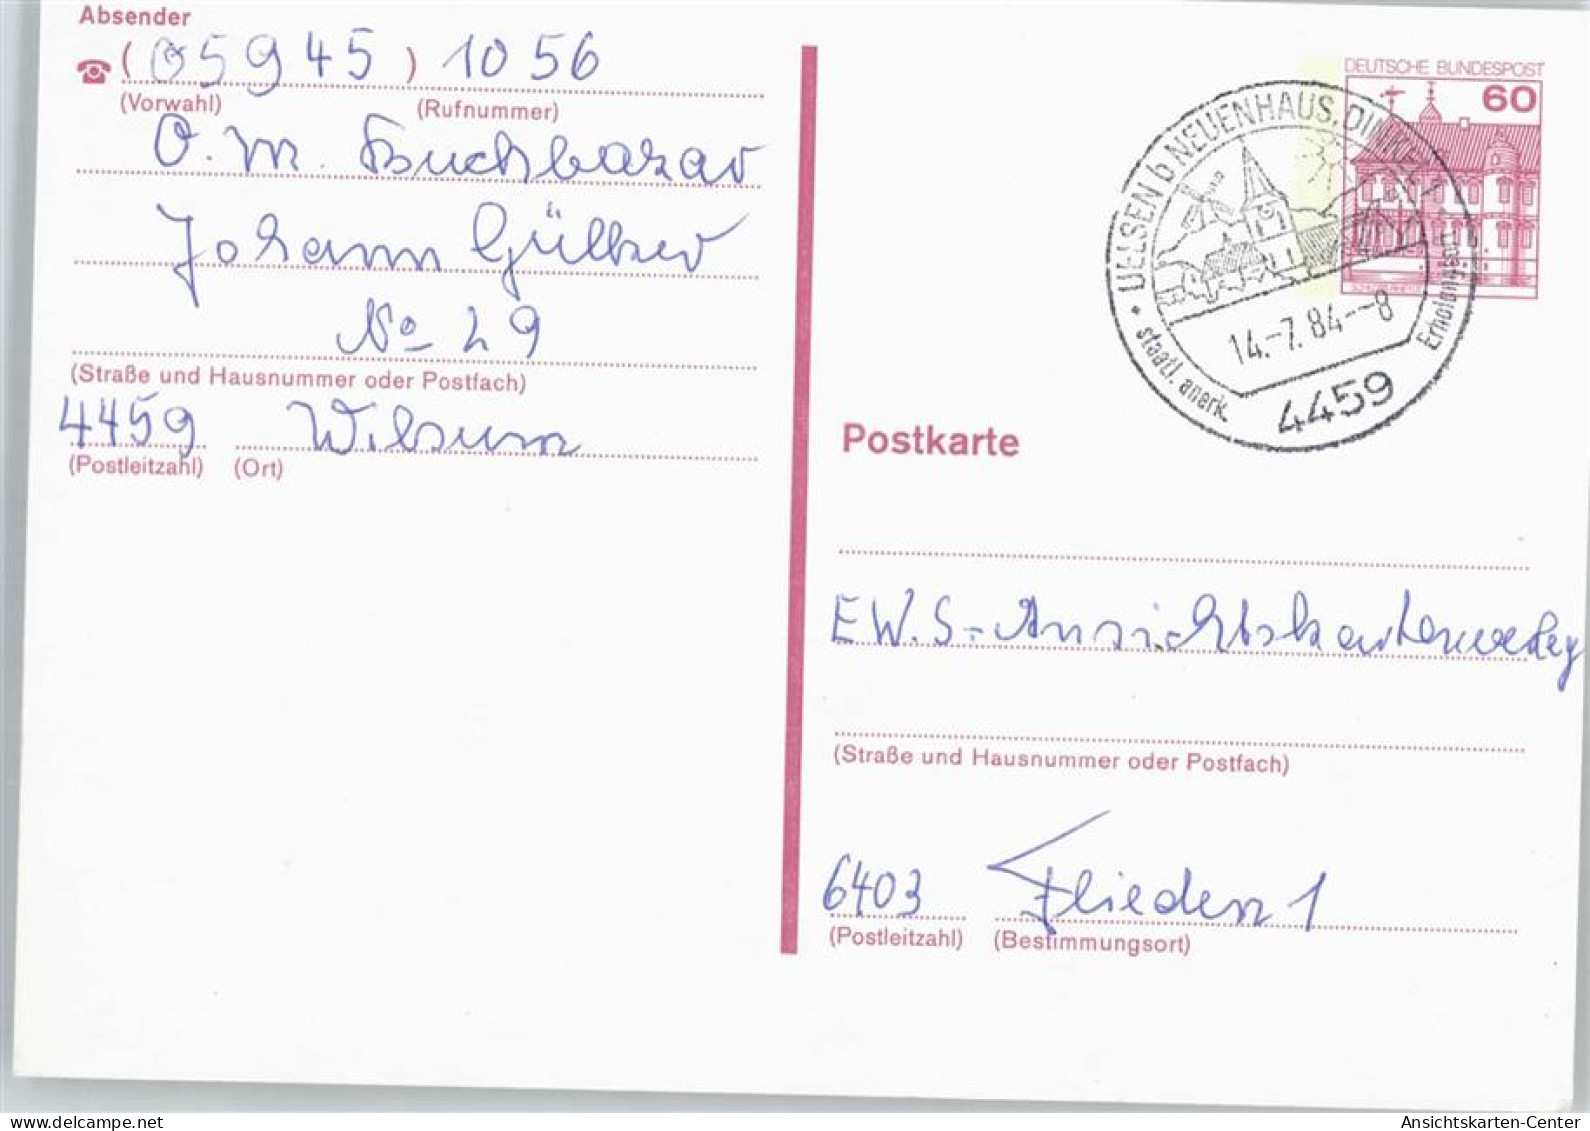 Absender
(05945) 1056
(Vorwahl) (Rufnummer)
O. M. Buchbazar
Johann Gülker
No 29
(Straße und Hausnummer oder Postfach)
4459 Wilsum
(Postleitzahl) (Ort)
DEUTSCHE BUNDESPOST
60
UELSEN b NEUENHAUS, DINKEL
14.-7.84--8
staatl. anerk. Erholungsort
4459
Postkarte
E.W.S-Ansichtskartenverlag
(Straße und Hausnummer oder Postfach)
6403 Flieden 1
(Postleitzahl) (Bestimmungsort)
delcampe.net
Ansichtskarten-Center